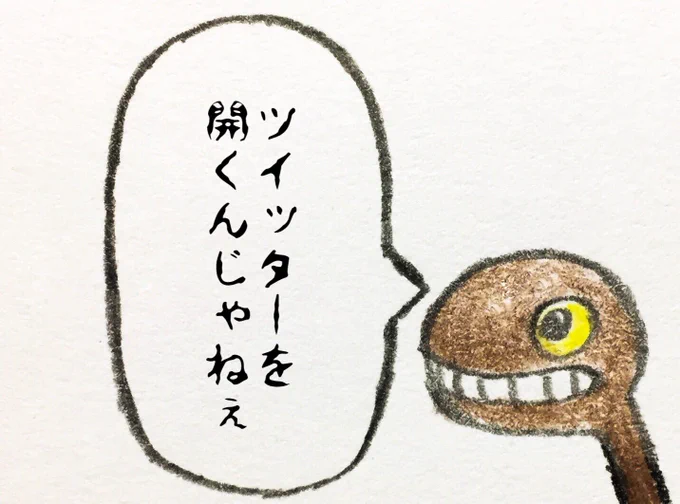 ツイッターを
開くんじゃねぇ